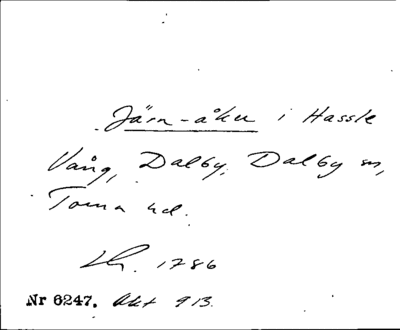 Järn-åker i Hassle
Vång, Dalby, Dalby sn,
Torna hd.
Lm. 1786
Nr 6247. Akt 913.